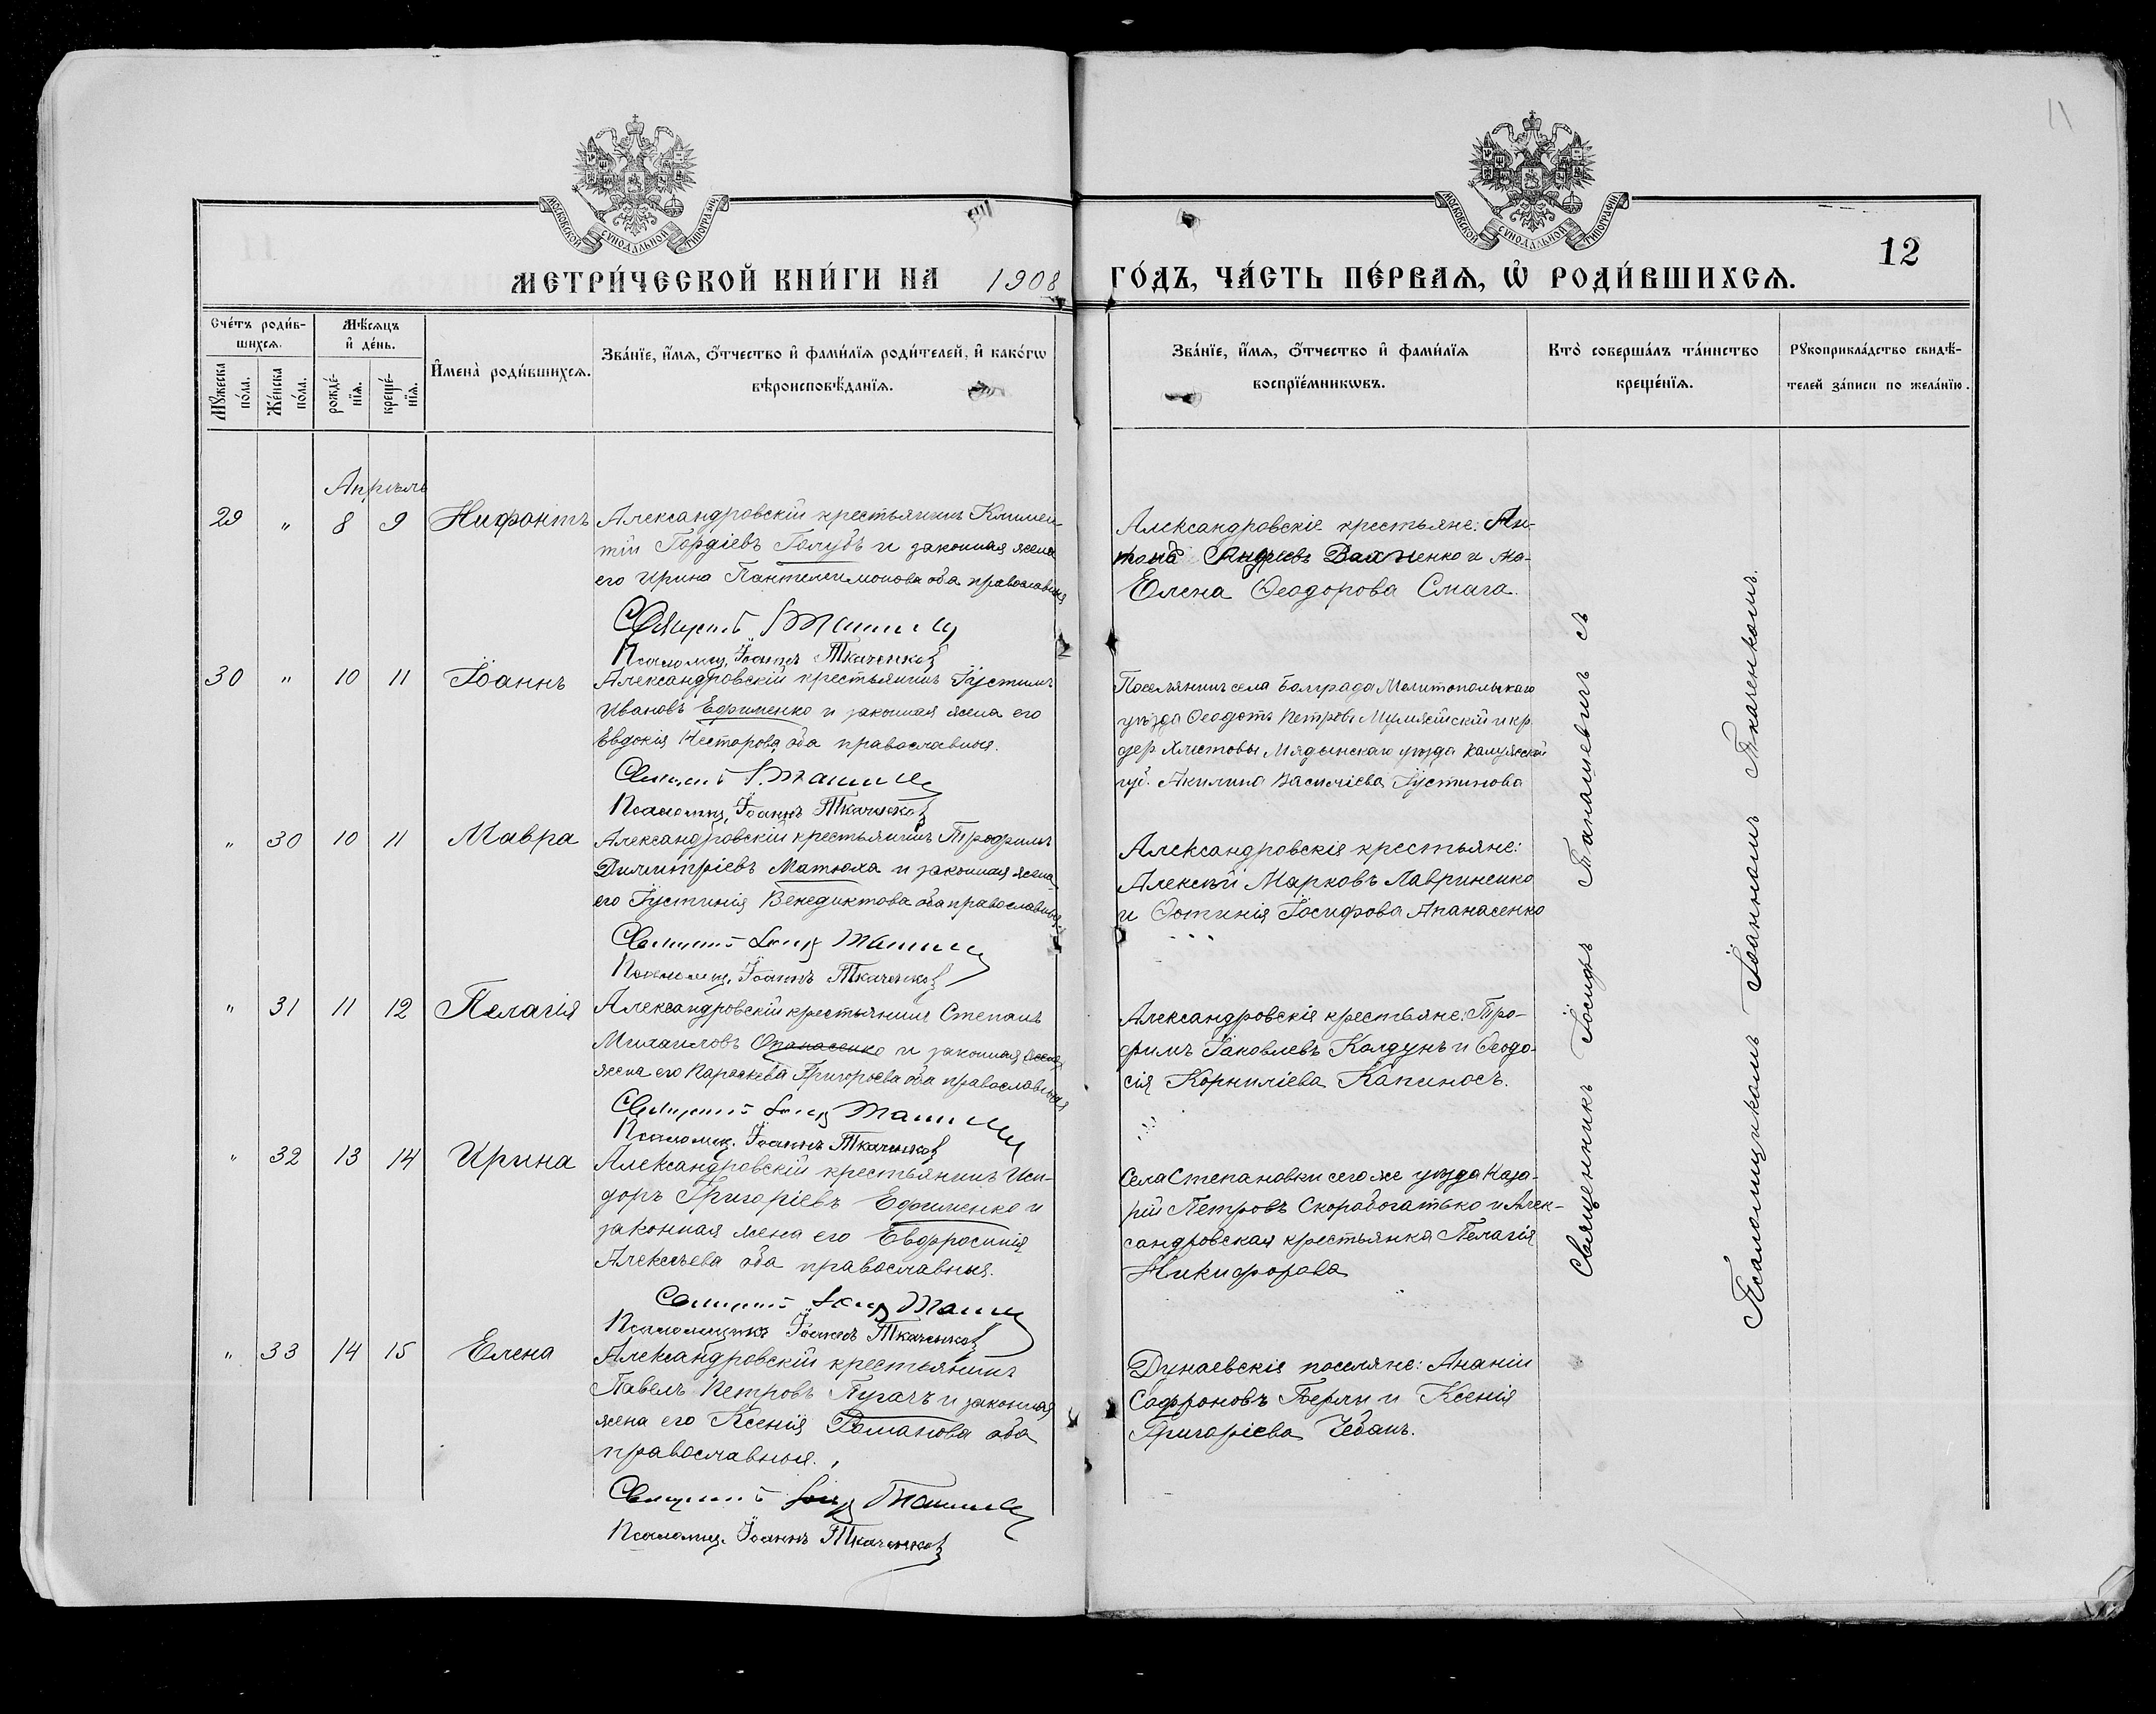 11
МОСКОВСКОЙ СѴНОДАЛЬНОЙ ТИПОГРАФІИ
МОСКОВСКОЙ СѴНОДАЛЬНОЙ ТИПОГРАФІИ
12
МЕТРИ́ЧЕСКОЙ КНИ́ГИ НА 1908 ГО́ДЪ, ЧА́СТЬ ПЕ́РВАѦ, Ѡ҆ РОДИ́ВШИХСѦ.
Сче́тъ роди́в-
шихсѧ.
Мꙋжеска по́ла.
Же́нска по́ла.
Мѣ́сѧцъ
и҆ де́нь.
рожде́-
нїѧ.
креще́-
нїѧ.
И҆мена̀ роди́вшихсѧ.
Зва́нїе, и҆́мѧ, ѻ҆́тчество и҆ фами́лїѧ роди́телей, и҆ како́гѡ
вѣроисповѣ́данїѧ.
Зва́нїе, и҆́мѧ, ѻ҆́тчество и҆ фами́лїѧ
воспрїе́мникѡвъ.
Кто̀ соверша́лъ та́инство
креще́нїѧ.
Рꙋкоприкла́дство свидѣ́-
телей за́писи по жела́нїю.
Апрѣль
29 " 8 9 Нифонтъ
Александровскій крестьянинъ Климен-
тій Гордіевъ Голубъ и законная жена
его Ирина Пантелеимонова оба православныя
Священ І Тапаш
Псаломщ. Іоаннъ Ткаченков
Александровскіе крестьяне: Ан-
тоній Андреевъ Вахненко и
Елена Ѳеодорова Смага.
30 " 10 11 Іоаннъ
Александровскій крестьянинъ Іустинъ
Ивановъ Ефименко и законная жена его
Евдокія Несторова оба православныя.
Священ І. Тапаш
Псаломщ. Іоаннъ Ткаченков
Поселянинъ села Болграда Мелитопольскаго
уѣзда Ѳеодотъ Петровъ и кр.
дер Хлыстовы Мядынскаго уѣзда Калужской
губ. Акилина Василіева Іустинова
" 30 10 11 Мавра
Александровскій крестьянинъ Трофимъ
Димитріевъ Матюха и законная жена
его Іустинія Венедиктова оба православныя.
Священ Іосиф Тапаш
Псаломщ. Іоаннъ Ткаченков
Александровскія крестьяне:
Алексѣй Марковъ Лавриненко
и Іосифова Апанасенко
" 31 11 12 Пелагія
Александровскій крестьянинъ Степанъ
Михаиловъ Опанасенко и законная жена
жена его Параскева Григорьева оба православныя
Священ Іосиф Тапаш
Псаломщ. Іоаннъ Ткаченков
Александровскія крестьяне: Тро-
фимъ Іаковлевъ Колдунъ и Ѳеодо-
сія Корниліева Капиносъ.
" 32 13 14 Ирина
Александровскій крестьянинъ Иси-
доръ Григоріевъ Ефименко и
законная жена его Евфросинія
Алексѣева оба православныя.
Священ Іосиф Тапаш
Псаломщикъ Іоаннъ Ткаченков
Села Степановки сего же уѣзда Наза-
рій Петровъ Скоробогатько и Алек-
сандровская крестьянка Пелагія
Никифорова
" 33 14 15 Елена
Александровскій крестьянинъ
Павелъ Петровъ Пугачъ и законная
жена его Ксенія Романова оба
православныя.
Священ Іосиф Тапаш
Псаломщ. Іоаннъ Ткаченков
Дунаевскія поселяне: Ананій
Софроновъ Берли и Ксенія
Григоріева Чебанъ.
Священникъ Іосифъ Тапашевичъ съ
Псаломщикомъ Іоанномъ Ткаченкомъ.